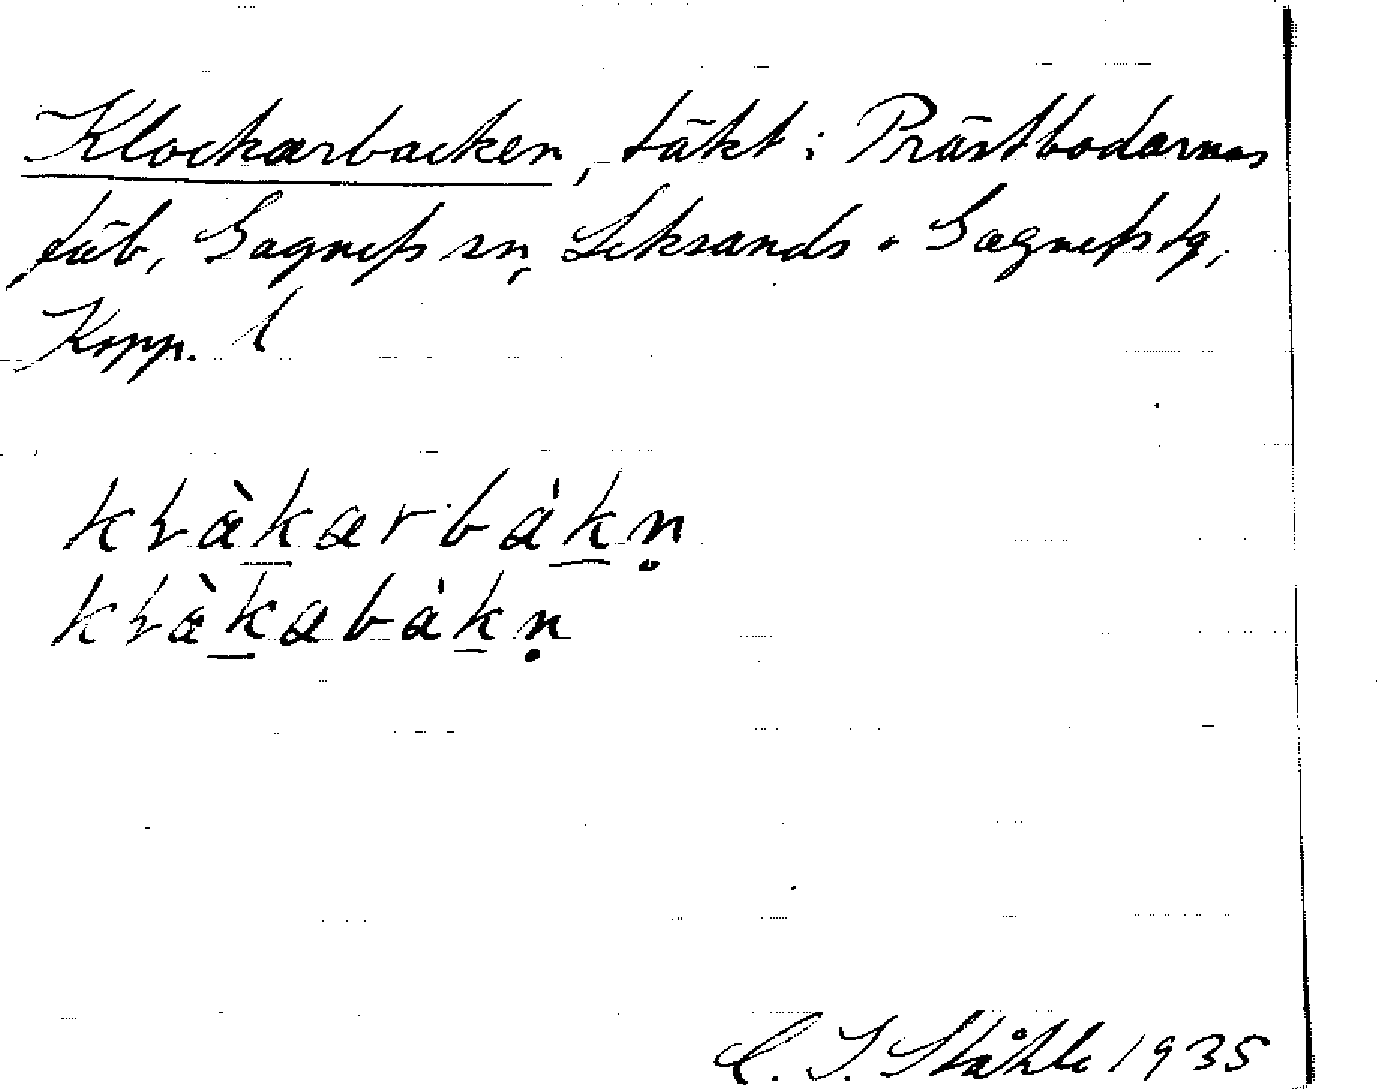 Klockarbacken, täkt i Prästbodarnas
fäb, Gagnefs sn, Leksands o Gagnefs tg,
Kopp. l
kɫàkarbákṇ
kɫàkabàkṇ
C. I. Ståhle 1935